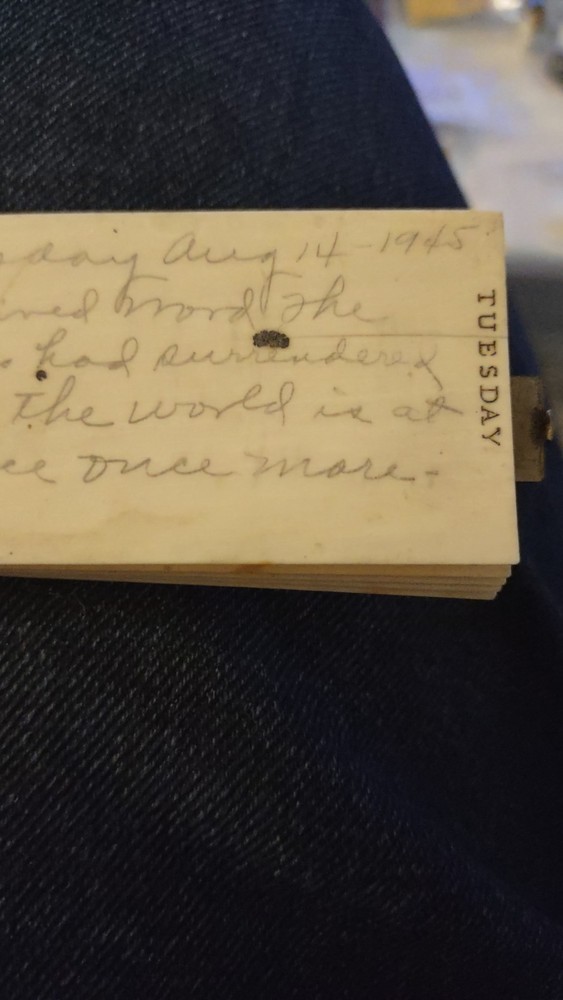 sday Aug 14-1945
ived word the
. had surrendered
The world is at
ce once more-
TUESDAY